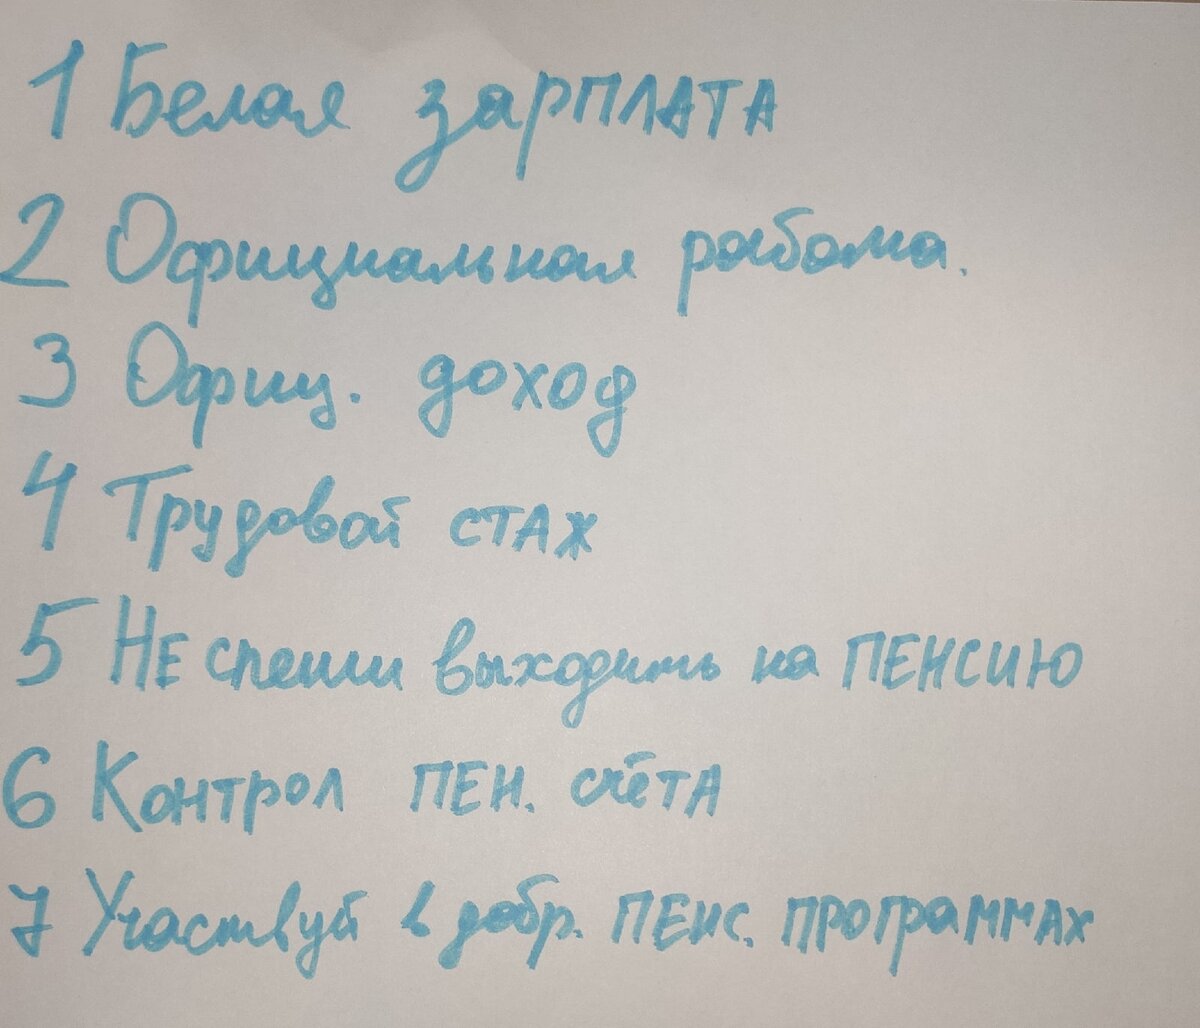 1 Белая зарплата
2 Официальная работа.
3 Офиц. доход
4 Трудовой стаж
5 Не спеши выходить на ПЕНСИЮ
6 Контрол пен. счёта
7 Участвуй в добр. пенс. программах